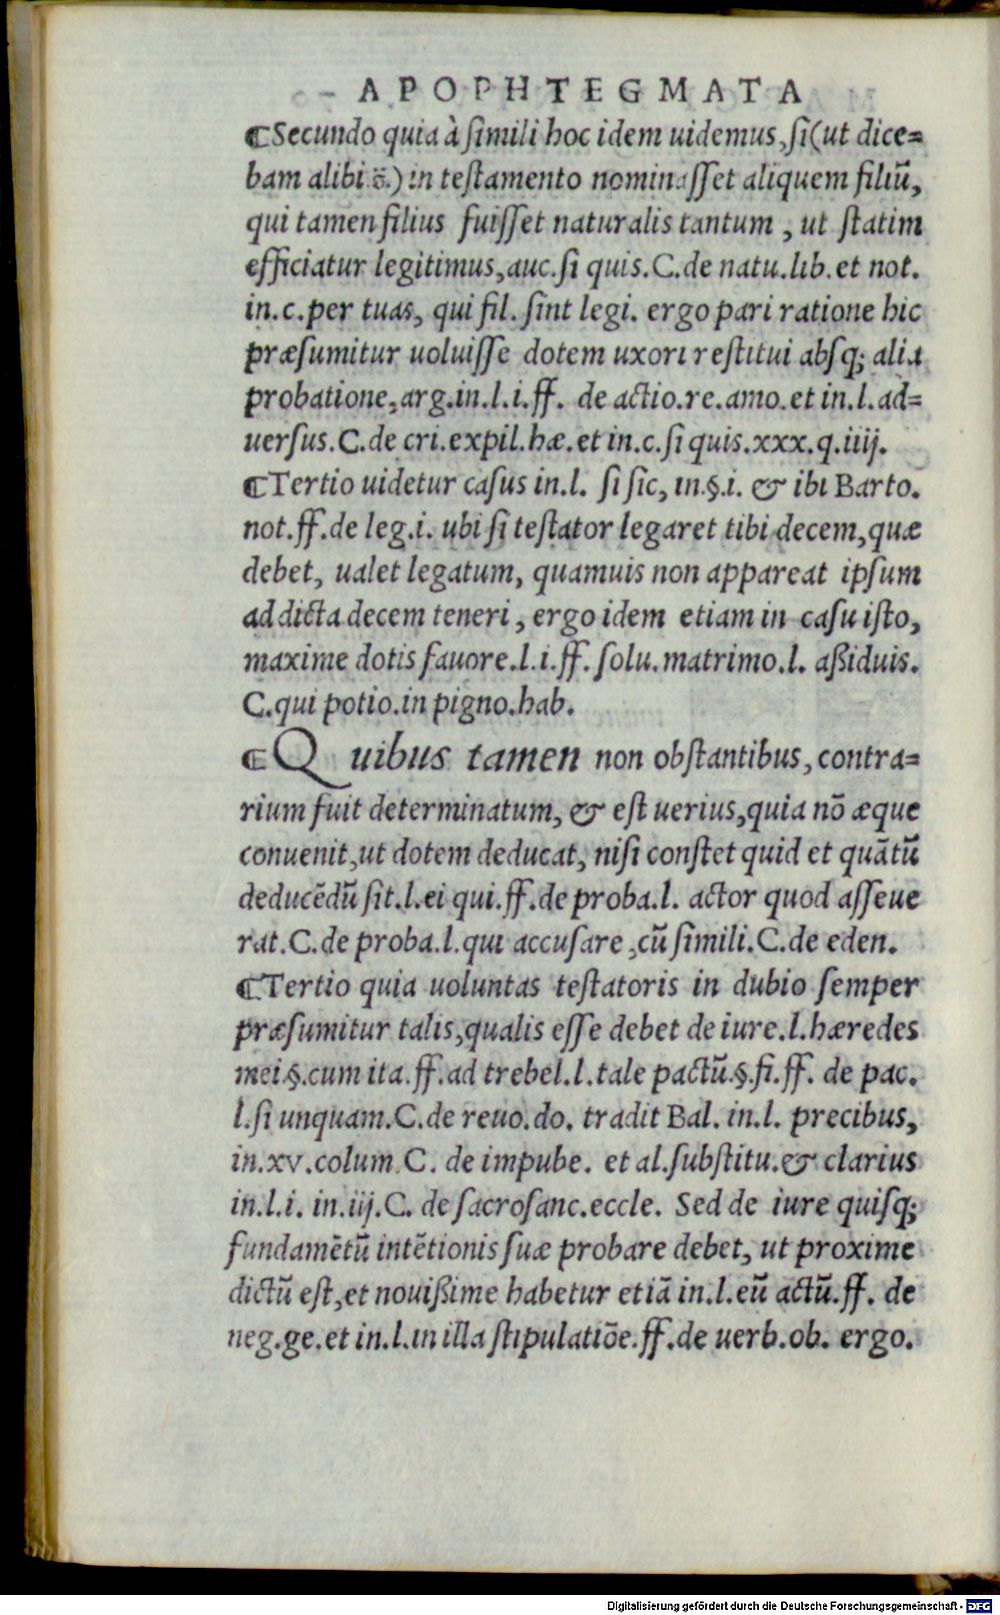 APOPHTEGMATA
⁋Secundo quia à simili hoc idem uidemus, si (ut dice=
bam alibi s̄.) in testamento nominasset aliquem filiū,
qui tamen filius fuisset naturalis tantum, ut statim
efficiatur legitimus, auc. si quis. C. de natu. lib. et not.
in. c. per tuas, qui fil. sint legi. ergo pari ratione hic
præsumitur uoluisse dotem uxori restitui absq; alia
probatione, arg. in. l. i. ff. de actio. re. amo. et in. l. ad=
uersus. C. de cri. expil. hæ. et in. c. si quis. xxx. q. iiij.
⁋Tertio uidetur casus in. l. si sic, in. §. i. & ibi Barto.
not. ff. de leg. i. ubi si testator legaret tibi decem, quæ
debet, ualet legatum, quamuis non appareat ipsum
ad dicta decem teneri, ergo idem etiam in casu isto,
maxime dotis fauore. l. i. ff. solu. matrimo. l. aßiduis.
C. qui potio. in pigno. hab.
⁋Quibus tamen non obstantibus, contra=
rium fuit determinatum, & est uerius, quia nō æque
conuenit, ut dotem deducat, nisi constet quid et quātū
deducēdū sit. l. ei qui. ff. de proba. l. actor quod asseue
rat. C. de proba. l. qui accusare, cū simili. C. de eden.
⁋Tertio quia uoluntas testatoris in dubio semper
præsumitur talis, qualis esse debet de iure. l. hæredes
mei. §. cum ita. ff. ad trebel. l. tale pactū. §. fi. ff. de pac.
l. si unquam. C. de reuo. do. tradit Bal. in. l. precibus,
in. xv. colum. C. de impube. et al. substitu. & clarius
in. l. i. in. iij. C. de sacrosanc. eccle. Sed de iure quisq;
fundamētū intētionis suæ probare debet, ut proxime
dictū est, et nouißime habetur etiā in. l. eū actū. ff. de
neg. ge. et in. l. in illa stipulatiōe. ff. de uerb. ob. ergo.
Digitalisierung gefördert durch die Deutsche Forschungsgemeinschaft - DFG